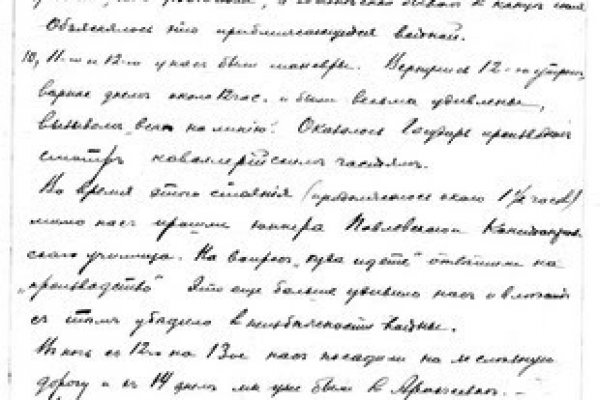 Объяснялось это приближающейся войной.
10, 11-го и 12-го у нас были маневры. Вернулись 12-го утром,
вернее днем около 12 час. и были весьма удивлены,
вызовом „всех на линию“. Оказалось Государь производил
смотръ кавалерийским частям.
Во время этого стояния (продолжалось около 1½ часов)
мимо нас прошли юнкера Павловского
ского училища. На вопрос „куда идете“ отвечали на
„производство“ Это еще больше удивило нас и
с тем убедило в неизбежности войны.
В ночь с 12го на 13ое нас посадили на железную
дорогу и в 14 днем мы уже были в